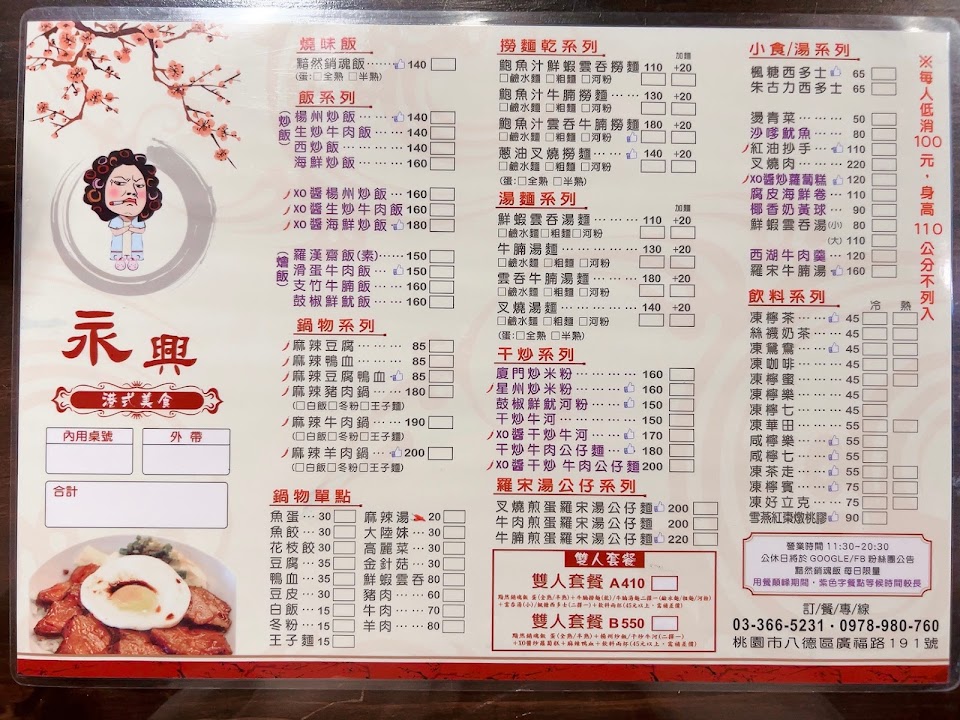 永興
港式美食
內用桌號
外帶
合計
燒味飯
黯然銷魂飯…… 140
(蛋:□全熟 □半熟)
飯系列
(炒飯)
楊州炒飯… 140
生炒牛肉飯… 140
西炒飯…… 140
海鮮炒飯… 160
XO醬楊州炒飯… 160
XO醬生炒牛肉飯 160
XO醬海鮮炒飯 180
(燴飯)
羅漢齋飯(素)…… 150
滑蛋牛肉飯… 150
支竹牛腩飯… 160
鼓椒鮮魷飯… 160
鍋物系列
麻辣豆腐…… 85
麻辣鴨血…… 85
麻辣豆腐鴨血 85
麻辣豬肉鍋… 180
(□白飯□冬粉□王子麵)
麻辣牛肉鍋… 190
(□白飯□冬粉□王子麵)
麻辣羊肉鍋… 200
(□白飯□冬粉□王子麵)
鍋物單點
魚蛋… 30
魚餃… 30
花枝餃 30
豆腐… 35
鴨血… 35
豆皮… 30
白飯… 15
冬粉… 15
王子麵 15
麻辣湯 20
大陸妹… 30
高麗菜… 30
金針菇… 30
鮮蝦雲吞 80
豬肉…… 60
牛肉…… 70
羊肉…… 80
撈麵乾系列
加麵
鮑魚汁鮮蝦雲吞撈麵 110 +20
□鹼水麵 □粗麵 □河粉
鮑魚汁牛腩撈麵…… 130 +20
□鹼水麵 □粗麵 □河粉
鮑魚汁雲吞牛腩撈麵 180 +20
□鹼水麵 □粗麵 □河粉
蔥油叉燒撈麵…… 140 +20
□鹼水麵 □粗麵 □河粉
(蛋:□全熟 □半熟)
湯麵系列
加麵
鮮蝦雲吞湯麵…… 110 +20
□鹼水麵 □粗麵□河粉
牛腩湯麵…… 130 +20
□鹼水麵 □粗麵 □河粉
雲吞牛腩湯麵…… 180 +20
□鹼水麵 □粗麵 □河粉
叉燒湯麵…… 140 +20
□鹼水麵 □粗麵 □河粉
(蛋:□全熟 □半熟)
干炒系列
廈門炒米粉…… 160
星州炒米粉…… 160
鼓椒鮮魷河粉… 150
干炒牛河…… 150
XO醬干炒牛河… 170
干炒牛肉公仔麵 180
XO醬干炒牛肉公仔麵 200
羅宋湯公仔系列
叉燒煎蛋羅宋湯公仔麵 200
牛肉煎蛋羅宋湯公仔麵 200
牛腩煎蛋羅宋湯公仔麵 220
雙人套餐
雙人套餐 A410
黯然銷魂飯 蛋(全熟/半熟)+牛腩撈麵(乾)/牛腩湯麵二擇一(鹼水麵/粗麵/河粉)
+雲吞湯(小)/楓糖西多士(二擇一)+飲料兩杯(45元以上,需補差價)
雙人套餐 B550
黯然銷魂飯 蛋(全熟/半熟)+楊州炒飯/干炒牛河(二擇一)
+XO醬炒蘿蔔糕+麻辣鴨血+飲料兩杯(45元以上,需補差價)
小食/湯系列
楓糖西多士 65
朱古力西多士 65
燙青菜…… 50
沙嗲魷魚… 80
紅油抄手… 110
叉燒肉…… 220
XO醬炒蘿蔔糕 120
腐皮海鮮卷… 110
椰香奶黃球… 90
鮮蝦雲吞湯(小) 80
(大) 110
西湖牛肉羹… 120
羅宋牛腩湯 160
飲料系列
冷 熱
凍檸茶… 45
絲襪奶茶… 45
凍鴛鴦… 45
凍咖啡… 45
凍檸蜜… 45
凍檸樂… 45
凍檸七… 45
凍華田… 55
咸檸樂… 55
咸檸七… 55
凍茶走… 55
凍檸賓… 75
凍好立克… 75
雪燕紅棗燉桃膠 90
※每人低消100元,身高110公分不列入
營業時間 11:30~20:30
公休日將於 GOOGLE/FB 粉絲團公告
黯然銷魂飯 每日限量
用餐顛峰期間,紫色字餐點等候時間較長
訂/餐/專/線
03-366-5231・0978-980-760
桃園市八德區廣福路191號